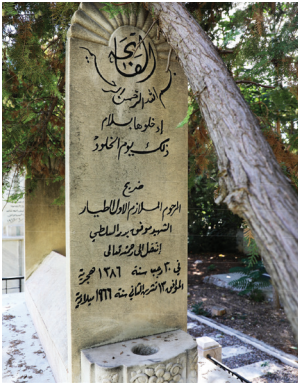 الفاتحة
بسم الله الرحمن الرحيم
إدخلوها بسلام
ذلك يوم الخلود
ضريح
المرحوم الملازم الاول الطيار
الشهيد موفق بدر السلطي
انتقل الى رحمته تعالى
في ٣٠ رجب سنة ١٣٨٦ هجرية
الموافق ١٣ تشرين الثاني سنة ١٩٦٦ ميلادية